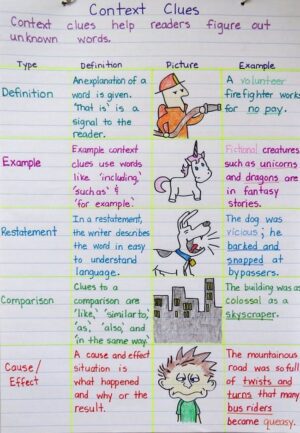 Context Clues
Context clues help readers figure out
unknown words.
Type Definition Picture Example
Definition
An explanation of a
word is given.
'That is' is a
signal to the
reader.
A volunteer
fire fighter works
for no pay.
Example
Example context
clues use words
like 'including,'
'such as' &
'for example.'
Fictional creatures
such as unicorns
and dragons are
in fantasy
stories.
Restatement
In a restatement,
the writer describes
the word in easy
to understand
language.
The dog was
vicious; he
barked and
snapped at
bypassers.
Comparison
Clues to a
comparison are
'like,' 'similar to,'
'as,' 'also,' and
'in the same way.'
The building was as
colossal as a
skyscraper.
Cause/
Effect
A cause and effect
situation is
what happened
and why or the
result.
The mountainous
road was so full
of twists and
turns that many
bus riders
became queasy.